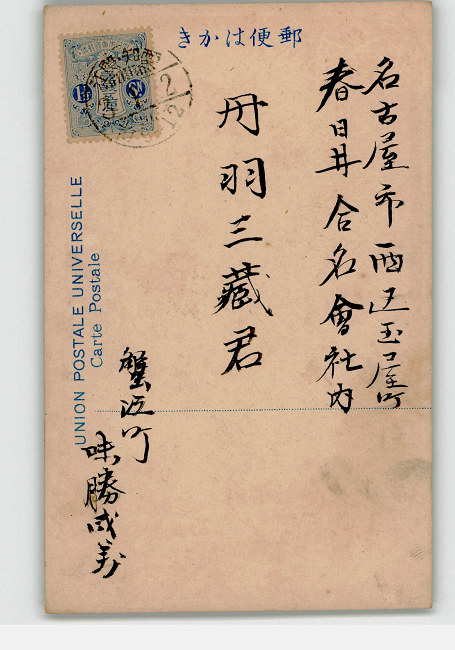 郵便はかき
名古屋市西区玉屋町
春日井合名會社内
丹羽三藏君
蟹江町
味勝
UNION POSTALE UNIVERSELLE
Carte Postale